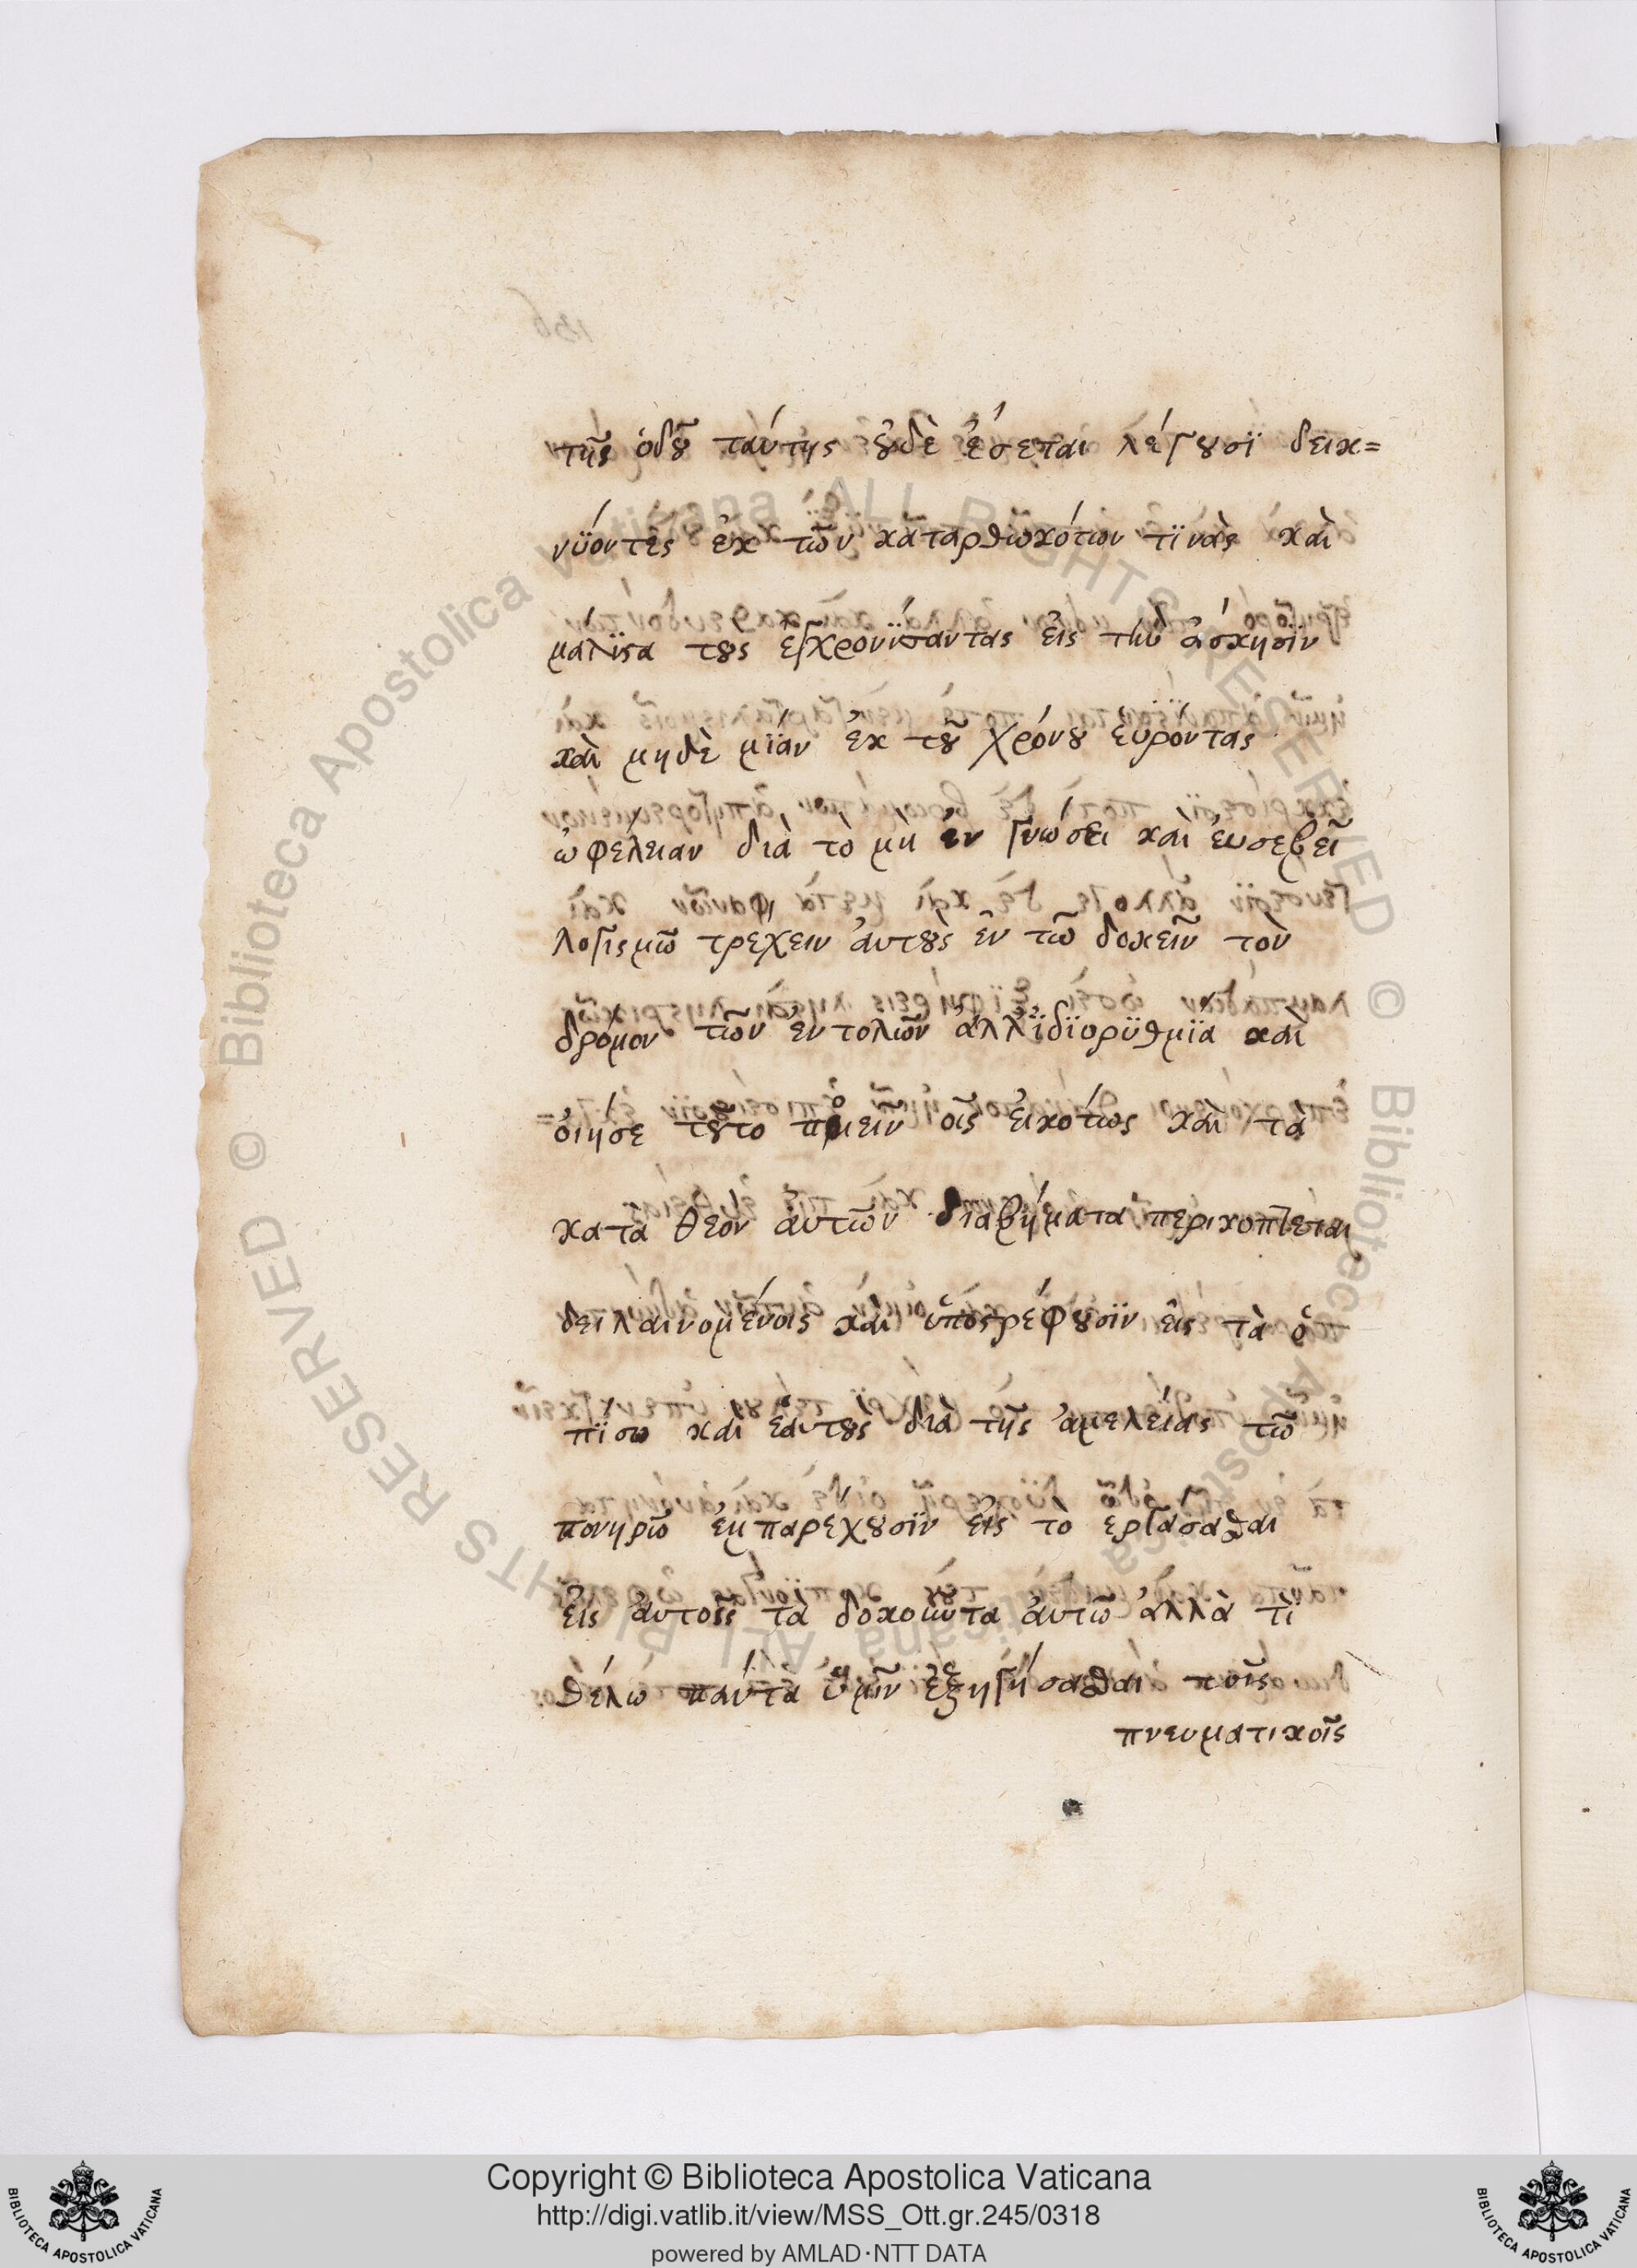 τῆς ὁδȣ͂ ταύτης ȣ̓δὲ ἔσεται λέγȣσϊ δεικ=
νϋοντὲς ἐκ τῶν καταρθωκότων τϊνὰς καὶ
μάλϊϛα τȣς ἐγχρονϊσαντας εἰς τὴν ἄσκησϊν
καὶ μηδὲ μϊὰν ἐκ τȣ͂ χρόνȣ ἑυρόντας
ὠφέλειαν διὰ τὸ μὴ ἐν γνώσει καὶ ἐυσεβεῖ
λογισμῶ τρεχειν ἀυτȣ̀ς ἐν τῶ δοκεῖν τὸν
δρόμον τῶν ἐντολῶν ἀλλ̓ ϊδϊορϋθμϊα καὶ
ὀιήσε τȣ͂το ποιεῖν οἷς ἐικότως καὶ τὰ
κατὰ θεὸν ἀυτῶν διαβήματα περικοπτεται
δειλαινομένοις καὶ ὑποϛρέφȣσϊν εἰς τὰ ὀ
πϊσω καὶ ἑαυτȣ̀ς διὰ τῆς ἀμελείας τῶ
πονηρῶ ἐμπαρεχȣσϊν εἰς τὸ εργασασθαι
ἐις ἀυτοῖς τὰ δοκοῦντα ἀυτῶ ἀλλὰ τϊ
θέλω πάντα ὑμῖν ἐξηγήσασθαι τοῖς
πνευματικοῖς
Copyright © Biblioteca Apostolica Vaticana
http://digi.vatlib.it/view/MSS_Ott.gr.245/0318
powered by AMLAD·NTT DATA
BIBLIOTECA APOSTOLICA VATICANA
BIBLIOTECA APOSTOLICA VATICANA
© Biblioteca Apostolica Vaticana ALL RIGHTS RESERVED
© Biblioteca Apostolica Vaticana ALL RIGHTS RESERVED